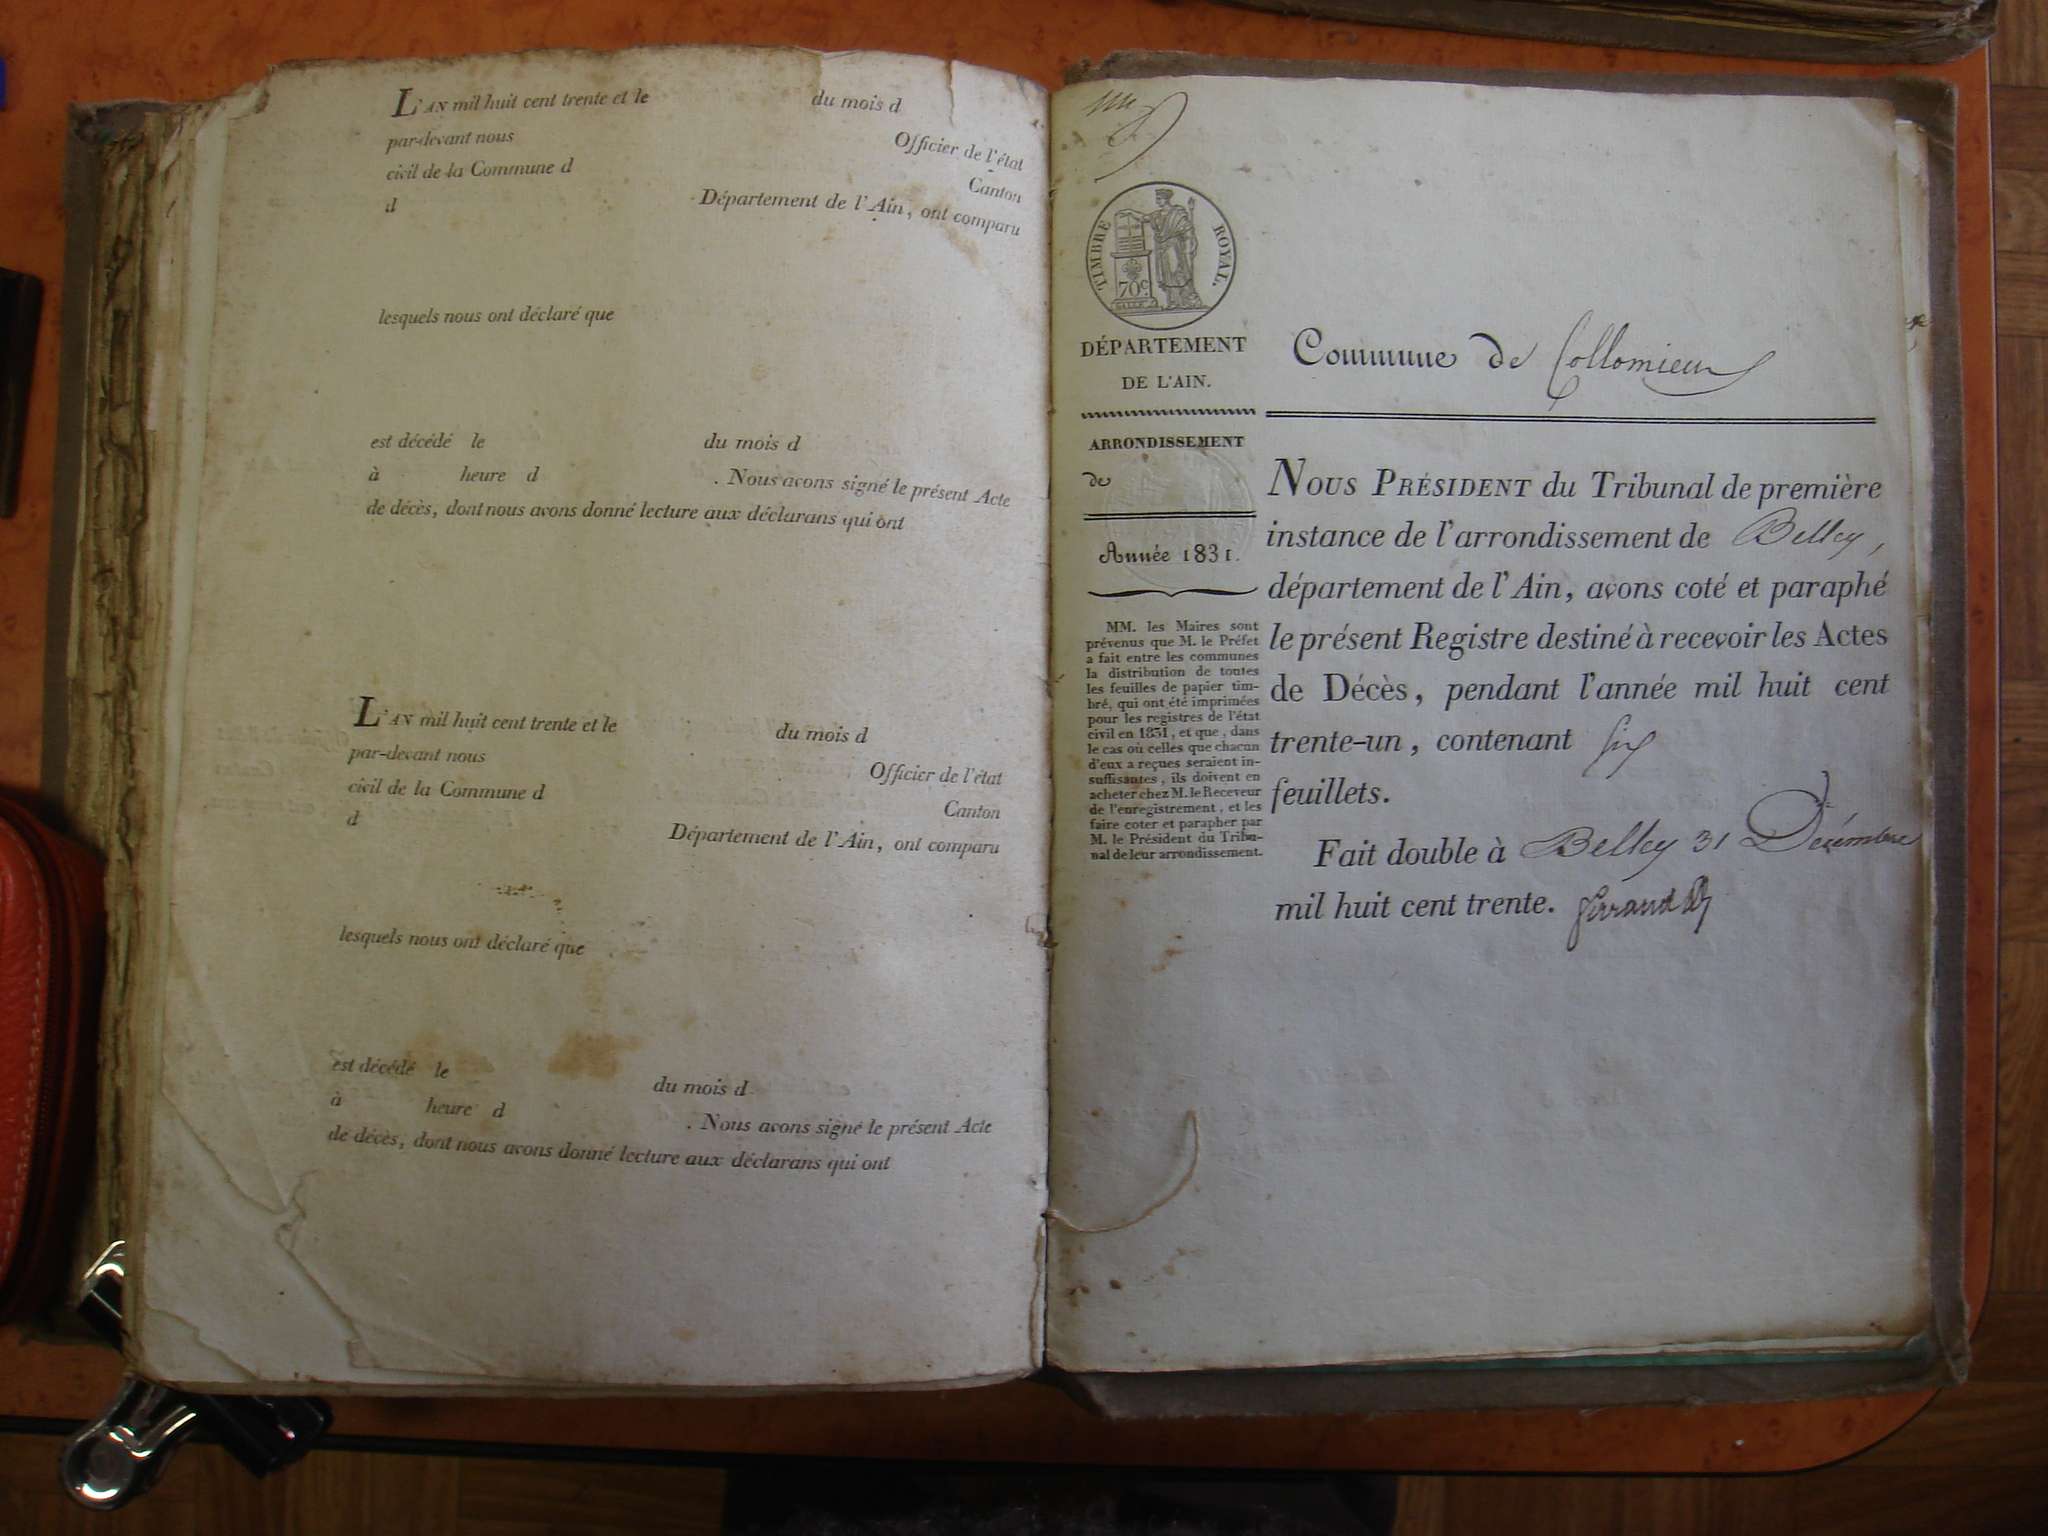 L'AN mil huit cent trente et le du mois d
par-devant nous Officier de l'état
civil de la Commune d Canton
d Département de l'Ain, ont comparu
lesquels nous ont déclaré que
est décédé le du mois d
à heure d . Nous avons signé le présent Acte
de décès, dont nous avons donné lecture aux déclarans qui ont
L'AN mil huit cent trente et le du mois d
par-devant nous Officier de l'état
civil de la Commune d Canton
d Département de l'Ain, ont comparu
lesquels nous ont déclaré que
est décédé le du mois d
à heure d . Nous avons signé le présent Acte
de décès, dont nous avons donné lecture aux déclarans qui ont
TIMBRE ROYAL.
70c
DÉPARTEMENT
DE L'AIN.
ARRONDISSEMENT
de
Année 1831.
MM. les Maires sont
prévenus que M. le Préfet
a fait entre les communes
la distribution de toutes
les feuilles de papier tim-
bré, qui ont été imprimées
pour les registres de l'état
civil en 1831, et que, dans
le cas où celles que chacun
d'eux a reçues seraient in-
suffisantes, ils doivent en
acheter chez M. le Receveur
de l'enregistrement, et les
faire coter et parapher par
M. le Président du Tribu-
nal de leur arrondissement.
Commune de Collomieu
NOUS PRÉSIDENT du Tribunal de première
instance de l'arrondissement de Belley,
département de l'Ain, avons coté et paraphé
le présent Registre destiné à recevoir les Actes
de Décès, pendant l'année mil huit cent
trente-un, contenant six
feuillets.
Fait double à Belley 31 Décembre
mil huit cent trente.